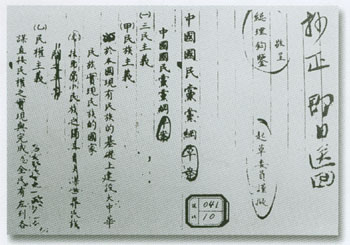 抄正 即日送回
敬呈
總理鈞鑒
起草委員謹擬
中國國民黨黨綱草案
中國國民黨黨綱草案
(一)三民主義
(甲)民族主義
於本國現有民族的基礎上建設大中華
民族實現民族的國家
扶助弱小民族之獨立自 謀世界民族
(乙)民權主義
謀直接民權之實現與完成 全民有左列各
041
10